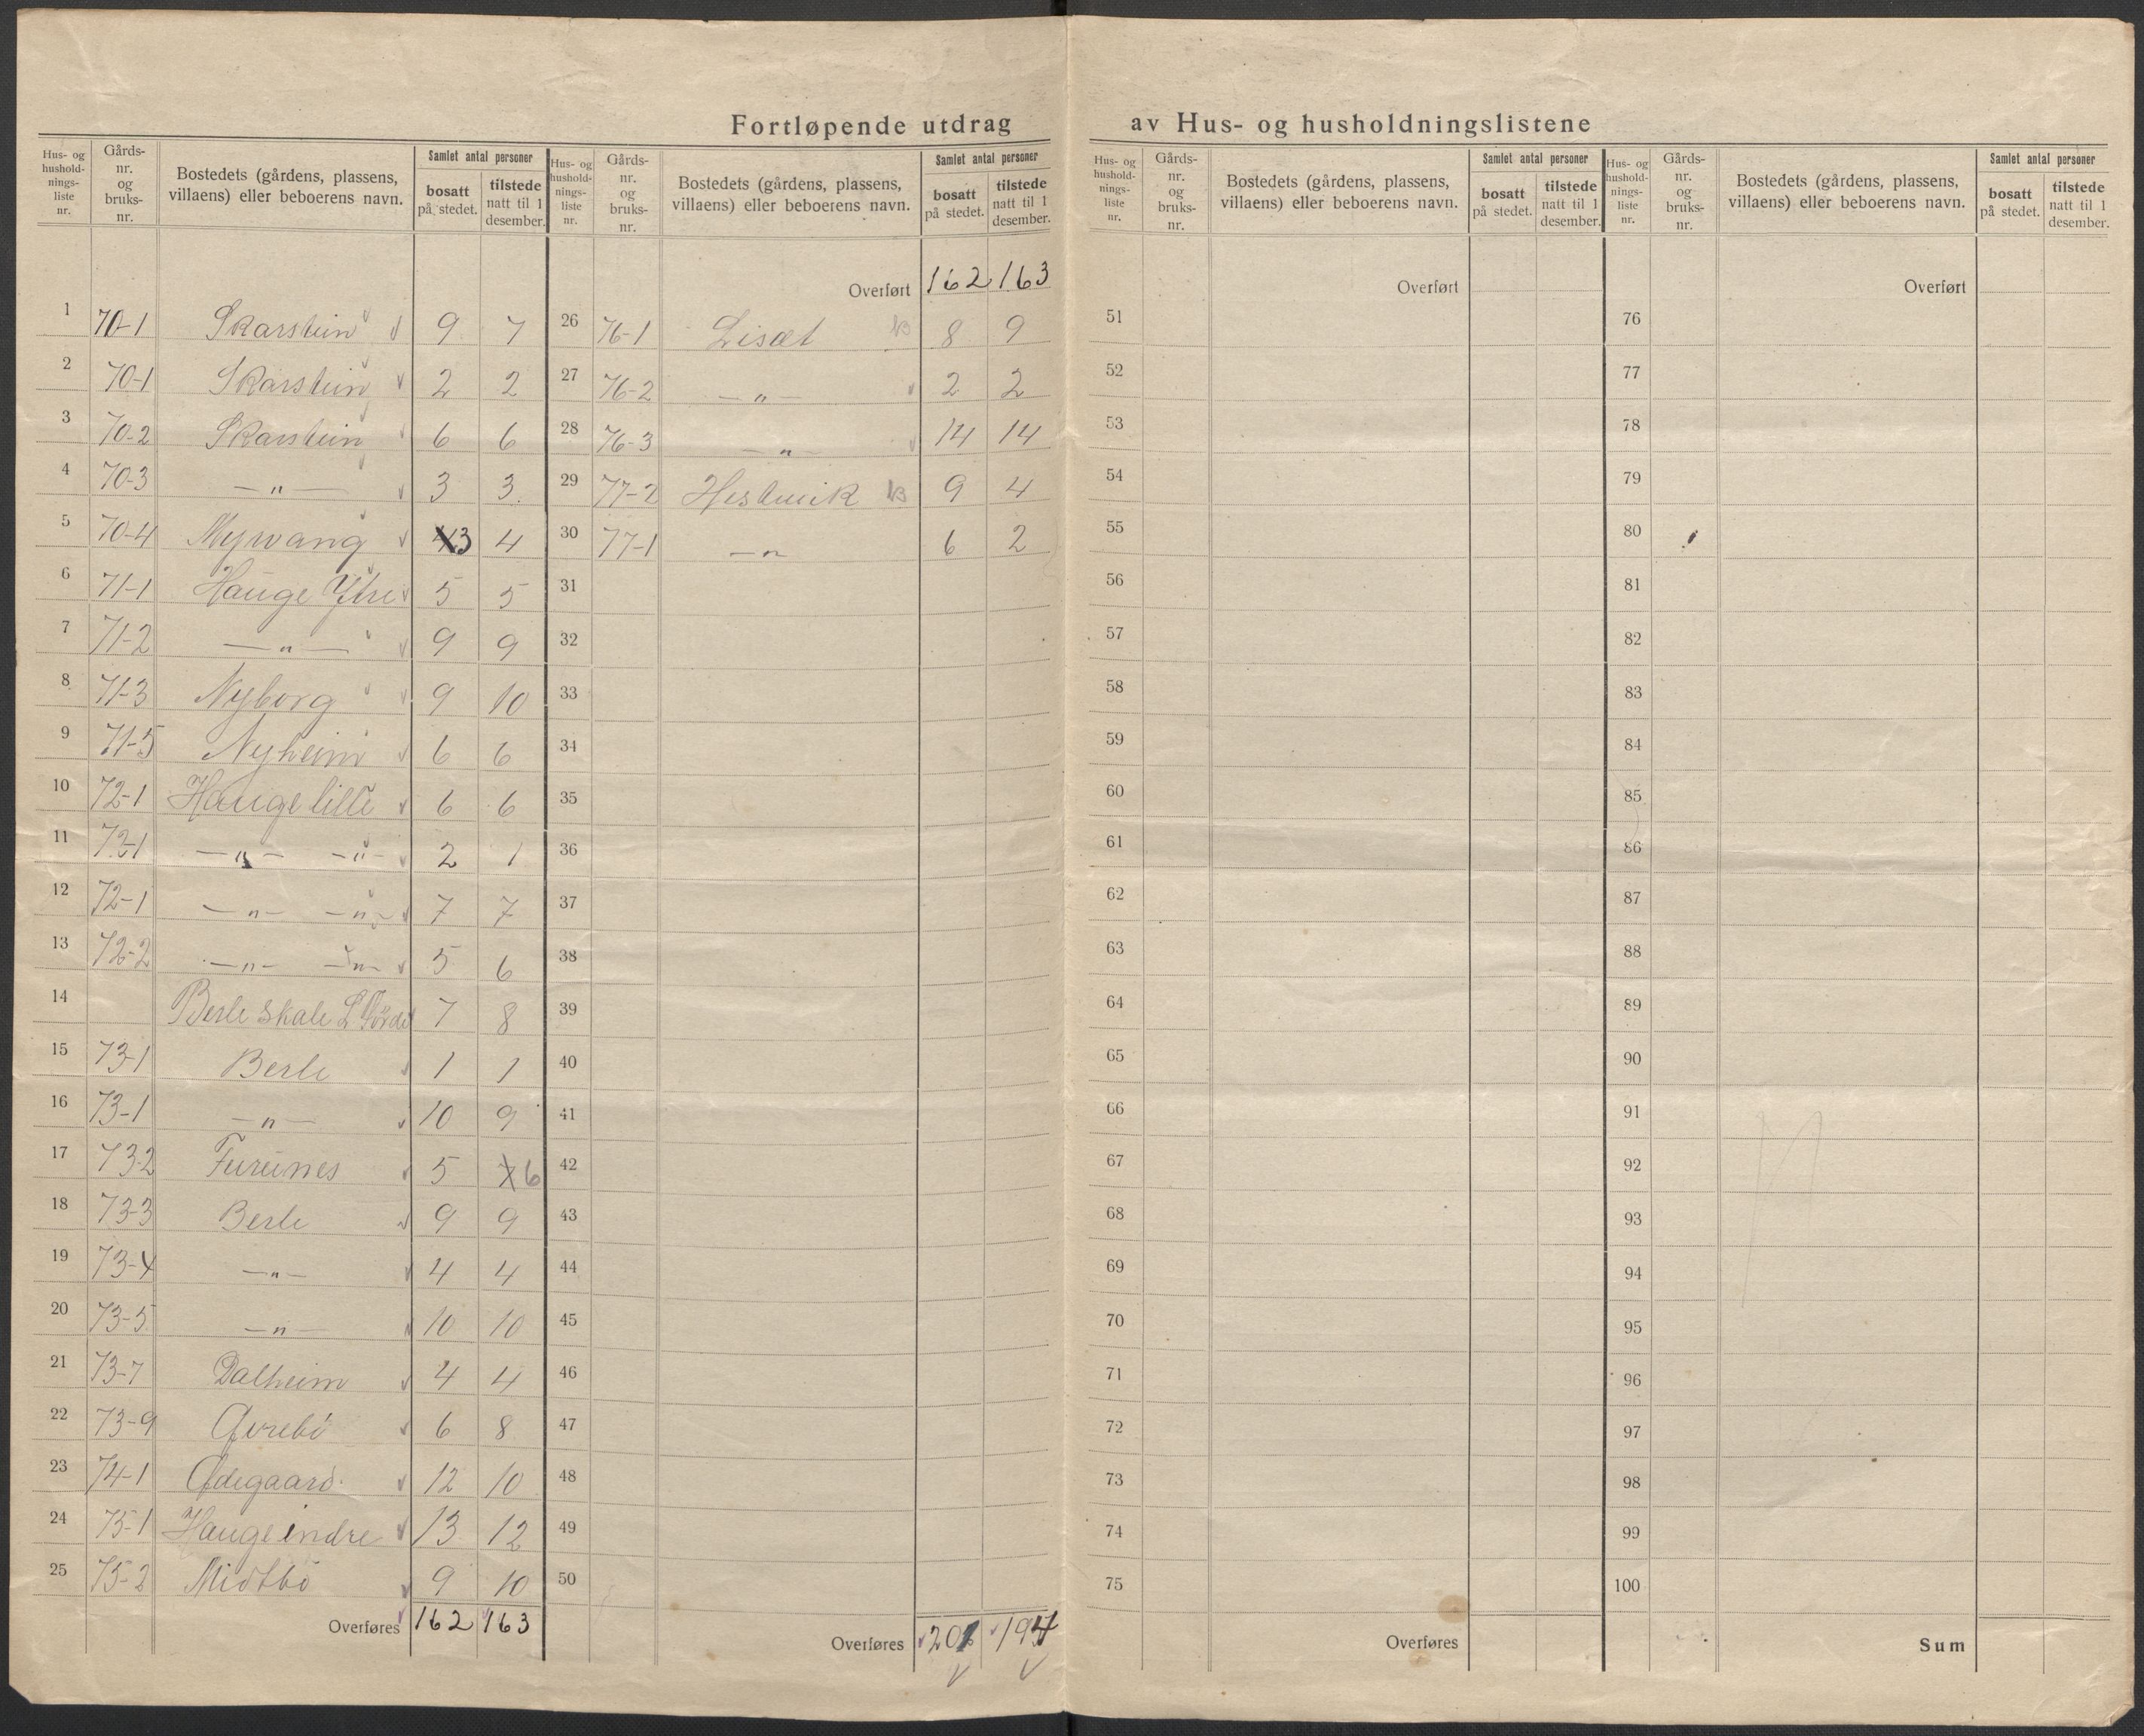 Fortløpende utdrag av Hus- og husholdningslistene
Hus- og hushold- nings- liste nr.
Gårds- nr. og bruks- nr.
Bostedets (gårdens, plassens, villaens) eller beboerens navn.
Samlet antal personer
bosatt på stedet.
tilstede natt til 1 desember.
Hus- og hushold- nings- liste nr.
Gårds- nr. og bruks- nr.
Bostedets (gårdens, plassens, villaens) eller beboerens navn.
Samlet antal personer
bosatt på stedet.
tilstede natt til 1 desember.
Hus- og hushold- nings- liste nr.
Gårds- nr. og bruks- nr.
Bostedets (gårdens, plassens, villaens) eller beboerens navn.
Samlet antal personer
bosatt på stedet.
tilstede natt til 1 desember.
Hus- og hushold- nings- liste nr.
Gårds- nr. og bruks- nr.
Bostedets (gårdens, plassens, villaens) eller beboerens navn.
Samlet antal personer
bosatt på stedet.
tilstede natt til 1 desember.
1 70-1 Skarstein 9 7
2 70-1 Skarstein 2 2
3 70-2 Skarstein 6 6
4 70-3 —"— 3 3
5 70-4 Myrvang 3 4
6 71-1 Hauge Ytre 5 5
7 71-2 —"— 9 9
8 71-3 Nyborg 9 10
9 71-5 Nyheim 6 6
10 72-1 Hauge lille 6 6
11 72-1 —"— —"— 2 1
12 72-1 —"— —"— 7 7
13 72-2 —"— —"— 5 6
14 Berle skole 7 8
15 73-1 Berle 1 1
16 73-1 —"— 10 9
17 73-2 Furunes 5 6
18 73-3 Berle 9 9
19 73-4 —"— 4 4
20 73-5 —"— 10 10
21 73-7 Dalheim 4 4
22 73-9 Øvrebö 6 8
23 74-1 Ødegaard 12 10
24 75-1 Hauge indre 13 12
25 75-2 Midtbö 9 10
Overføres 162 163
Overført 162 163
26 76-1 Liset 8 9
27 76-2 —"— 2 2
28 76-3 —"— 14 14
29 77-2 Hestvik 9 4
30 77-1 —"— 6 2
31
32
33
34
35
36
37
38
39
40
41
42
43
44
45
46
47
48
49
50
Overføres 201 194
Overført
51
52
53
54
55
56
57
58
59
60
61
62
63
64
65
66
67
68
69
70
71
72
73
74
75
Overføres
Overført
76
77
78
79
80
81
82
83
84
85
86
87
88
89
90
91
92
93
94
95
96
97
98
99
100
Sum